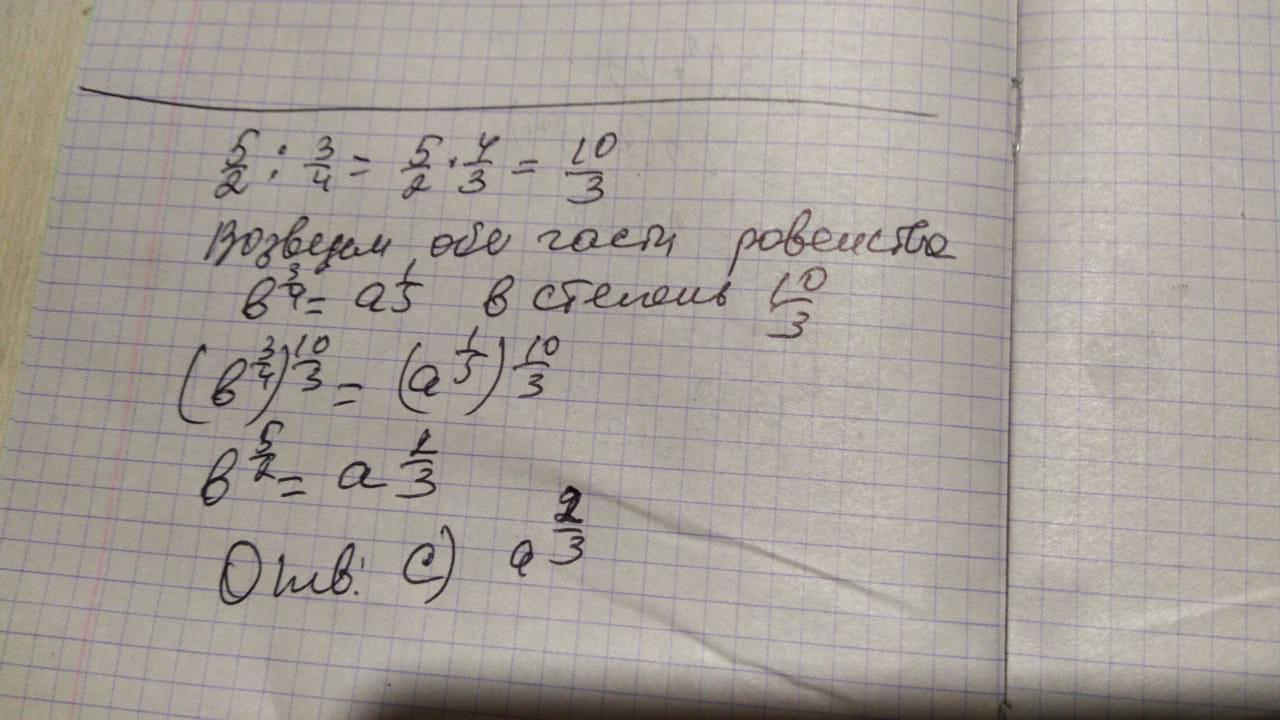 5/2 : 3/4 = 5/2 · 4/3 = 10/3
Возведем обе части равенства
в^(3/4) = a^(1/5) в степень 10/3
(в^(3/4))^(10/3) = (a^(1/5))^(10/3)
в^(5/2) = a^(2/3)
Отв: C) a^(2/3)